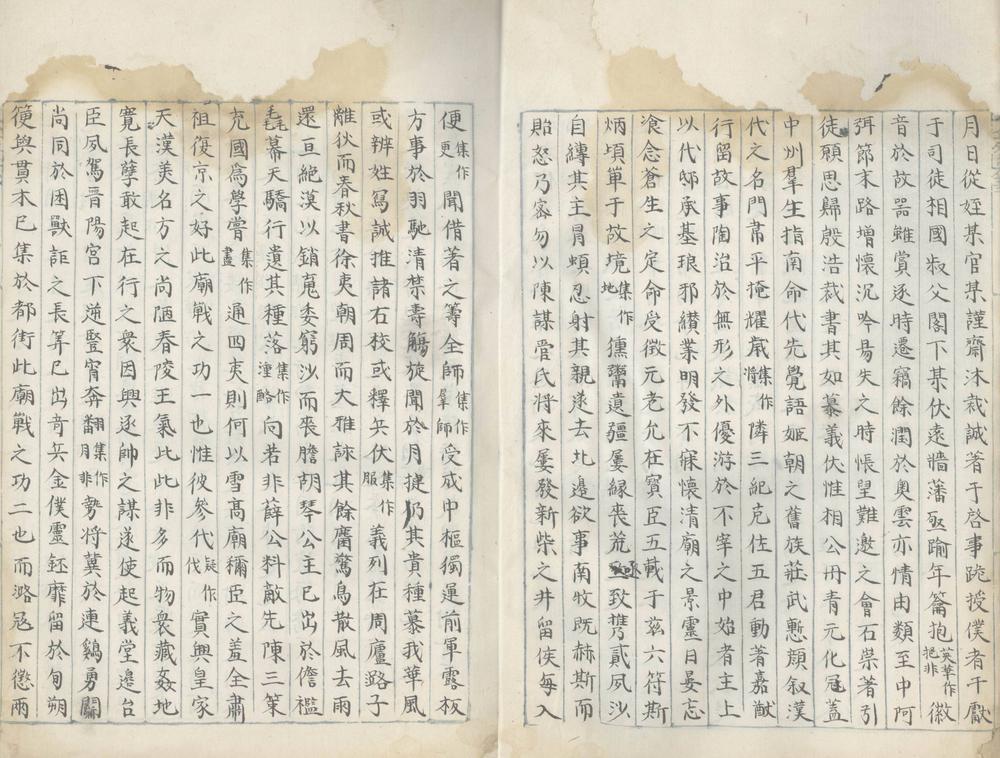 月日從姪某官某謹齋沐裁誠著于啓事跪授僕者干獻
于司徒相國叔父閤下某伏遠墻藩亟踰年籥抱英華作挹非徽
音於故器雖賞逐時遷竊餘潤於奥雲亦情由類至中阿
弭節末路增懷沉吟昜失之時悵望難邀之會石崇著引
徒願思歸殷浩裁書其如慕義伏惟相公丹青元化冠蓋
中州羣生指南命代先覺語姬朝之舊族莊武慙顔叙漢
代之名門韋平掩耀嵗集作將隣三紀克佐五君動著嘉猷
行留故事陶冶於無形之外優游於不宰之中始者主上
以代邸承基琅邪纉業明發不寐懷清廟之景靈日晏忘
飡念蒼生之定命爰徵元老允在寳臣五載于兹六符斯
炳頃單于故境集作地獯鬻遺疆屢緣丧荒亟致携貳夙沙
自縛其主冒頓忍射其親遂去北邉欲事南牧既赫斯而
貽怒乃密勿以陳謀管氏將來屢發新柴之井留侯每入
便集作更聞借著之筭全師集作羣師受成中樞獨運前軍露板
方事於羽馳清禁壽觴旋聞於月捷仍其貴種慕我華風
或辨姓寫誠推諸右校或釋兵伏集作服義列在周廬潞子
離狄而春秋書徐夷朝周而大雅詠其餘麕驚鳥散風去雨
還亘絶漠以銷魂委窮沙而喪膽胡琴公主已出於儋襤
毳幕天驕行遺其種落集作潼酪向若非薛公料敵先陳三策
充國為學嘗集作盡通四夷則何以雪髙廟稱臣之羞全肅
祖復京之好此廟戰之功一也惟彼參代疑作伐實興皇家
天漢美名方之尚陋舂陵王氣此此非多而物衆藏姦地
寛長孽敢起在行之衆因興逐帥之謀遂使起義堂邉台
臣夙駕晉陽宮下逆豎宵奔翻集作月非勢將冀於連鷄勇鬬
尚同於困獸詎之長筭已出竒兵金僕靈鈺靡留於旬朔
與貫木已集於都街此廟戰之功二也而潞冦不懲兩